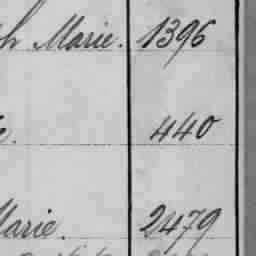 Marie. 1396
440
Marie. 2479